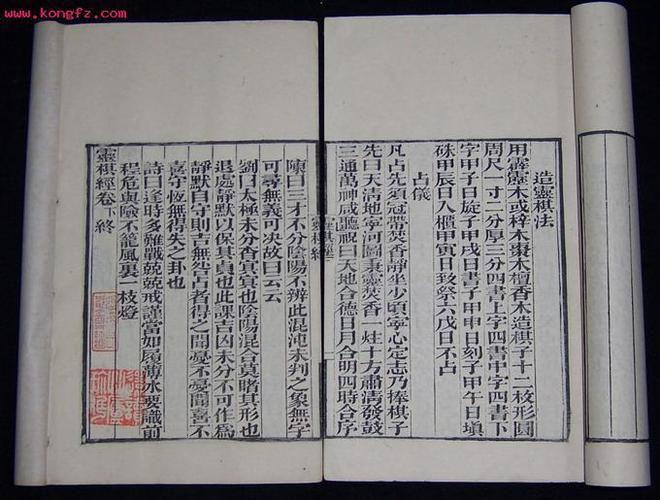 www.kongfz.com
造靈棋法
用霹靂木或梓木棗木檀香木造棋子十二枚形圓
周尺一寸一分厚三分四書上字四書中字四書下
字甲子日旋子甲戌日書子甲申日刻子甲午日填
硃甲辰日入櫃甲寅日致祭六戊日不占
占儀
凡占先須冠帶焚香靜坐少頃寧心定志乃捧棋子
先曰天清地寧河圖秉靈焚香一炷十方肅清發鼓
三通萬神咸聽祝曰天地合德日月合明四時合序
靈棋經
陳曰三才不分陰陽不辨此混沌未判之象無字
可尋無義可決故曰云云
劉曰太極未分昏冥冥也陰陽混合莫睹其形也
退處靜默以保其貞也此課吉凶未分不可作為
靜默自守則吉無咎占者得之聞憂不憂聞喜不
喜守恆無得失之卦也
詩曰逢時多難戰兢兢戒謹當如履薄冰要識前
程危與險不籠風裏一枝燈
靈棋經卷下終